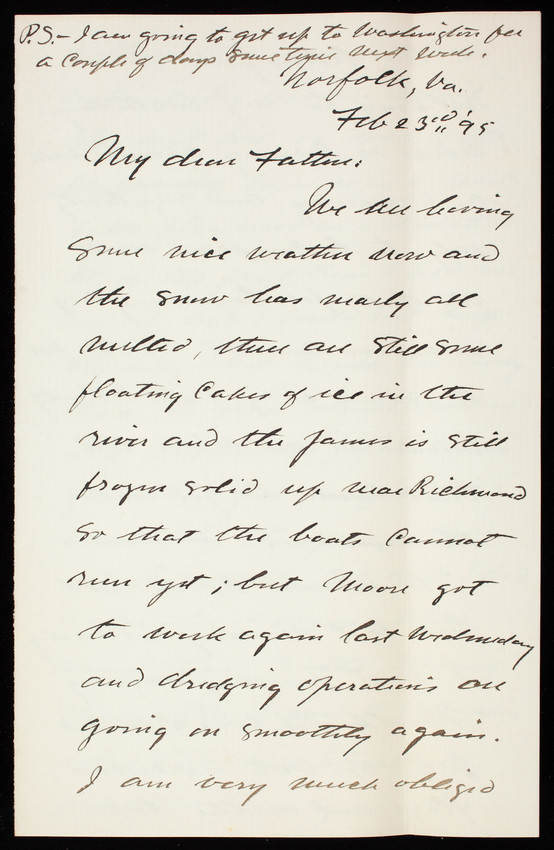 P.S. - I am going to get up to Washington for
a couple of days sometime next week.
Norfolk, Va.
Feb 23rd '95
My dear Father:
We are having
some nice weather now and
the snow has nearly all
melted, there are still some
floating cakes of ice in the
river and the James is still
frozen solid up near Richmond
so that the boats cannot
run yet; but Moore got
to work again last Wednesday
and dredging operations are
going on smoothly again.
I am very much obliged